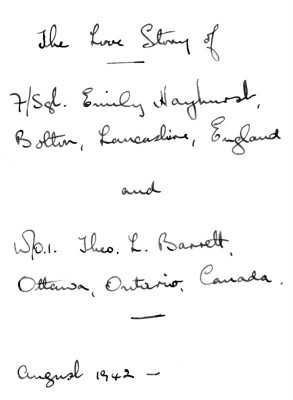 The Love Story of
F/Sgt. Emily Hayhurst,
Bolton, Lancashire, England
and
W/O.1. Theo. L. Barrett,
Ottawa, Ontario, Canada.
August 1942 —